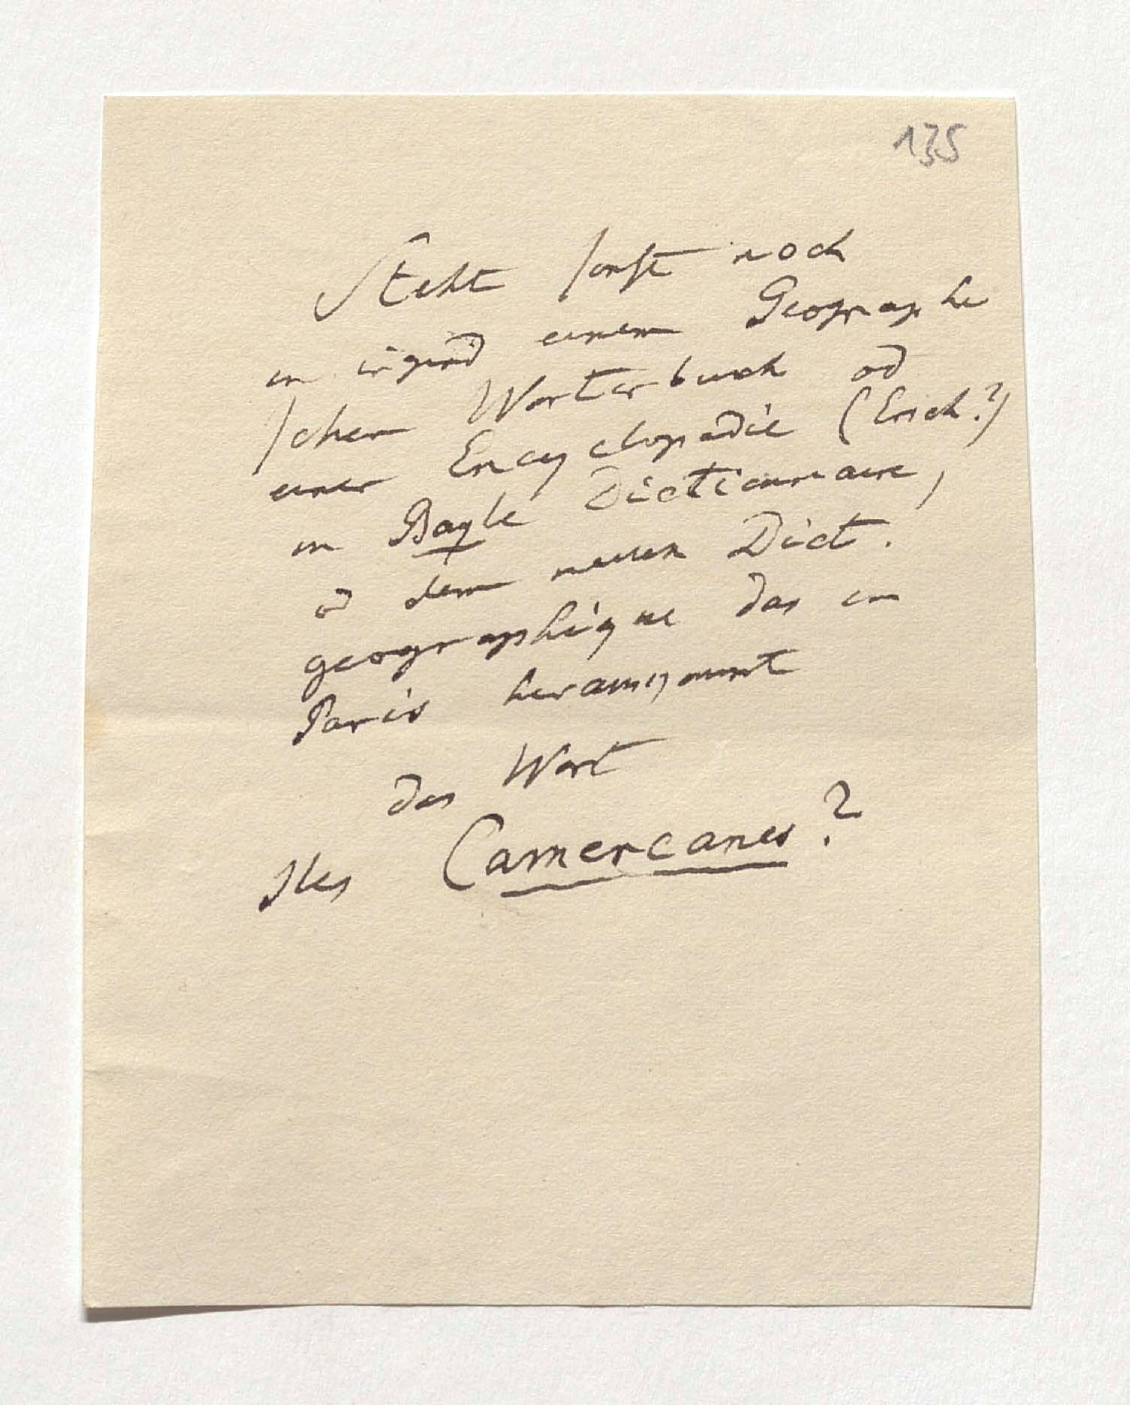 135
Steht sonst noch
in irgend einem Geographi
schen Worterbuch od
einer Encyclopädie (Ersch?)
in Bayle Dictionnaire,
od dem neuen Dict.
geographique das in
Paris herauskommt
das Wort
Iles Camercanes?